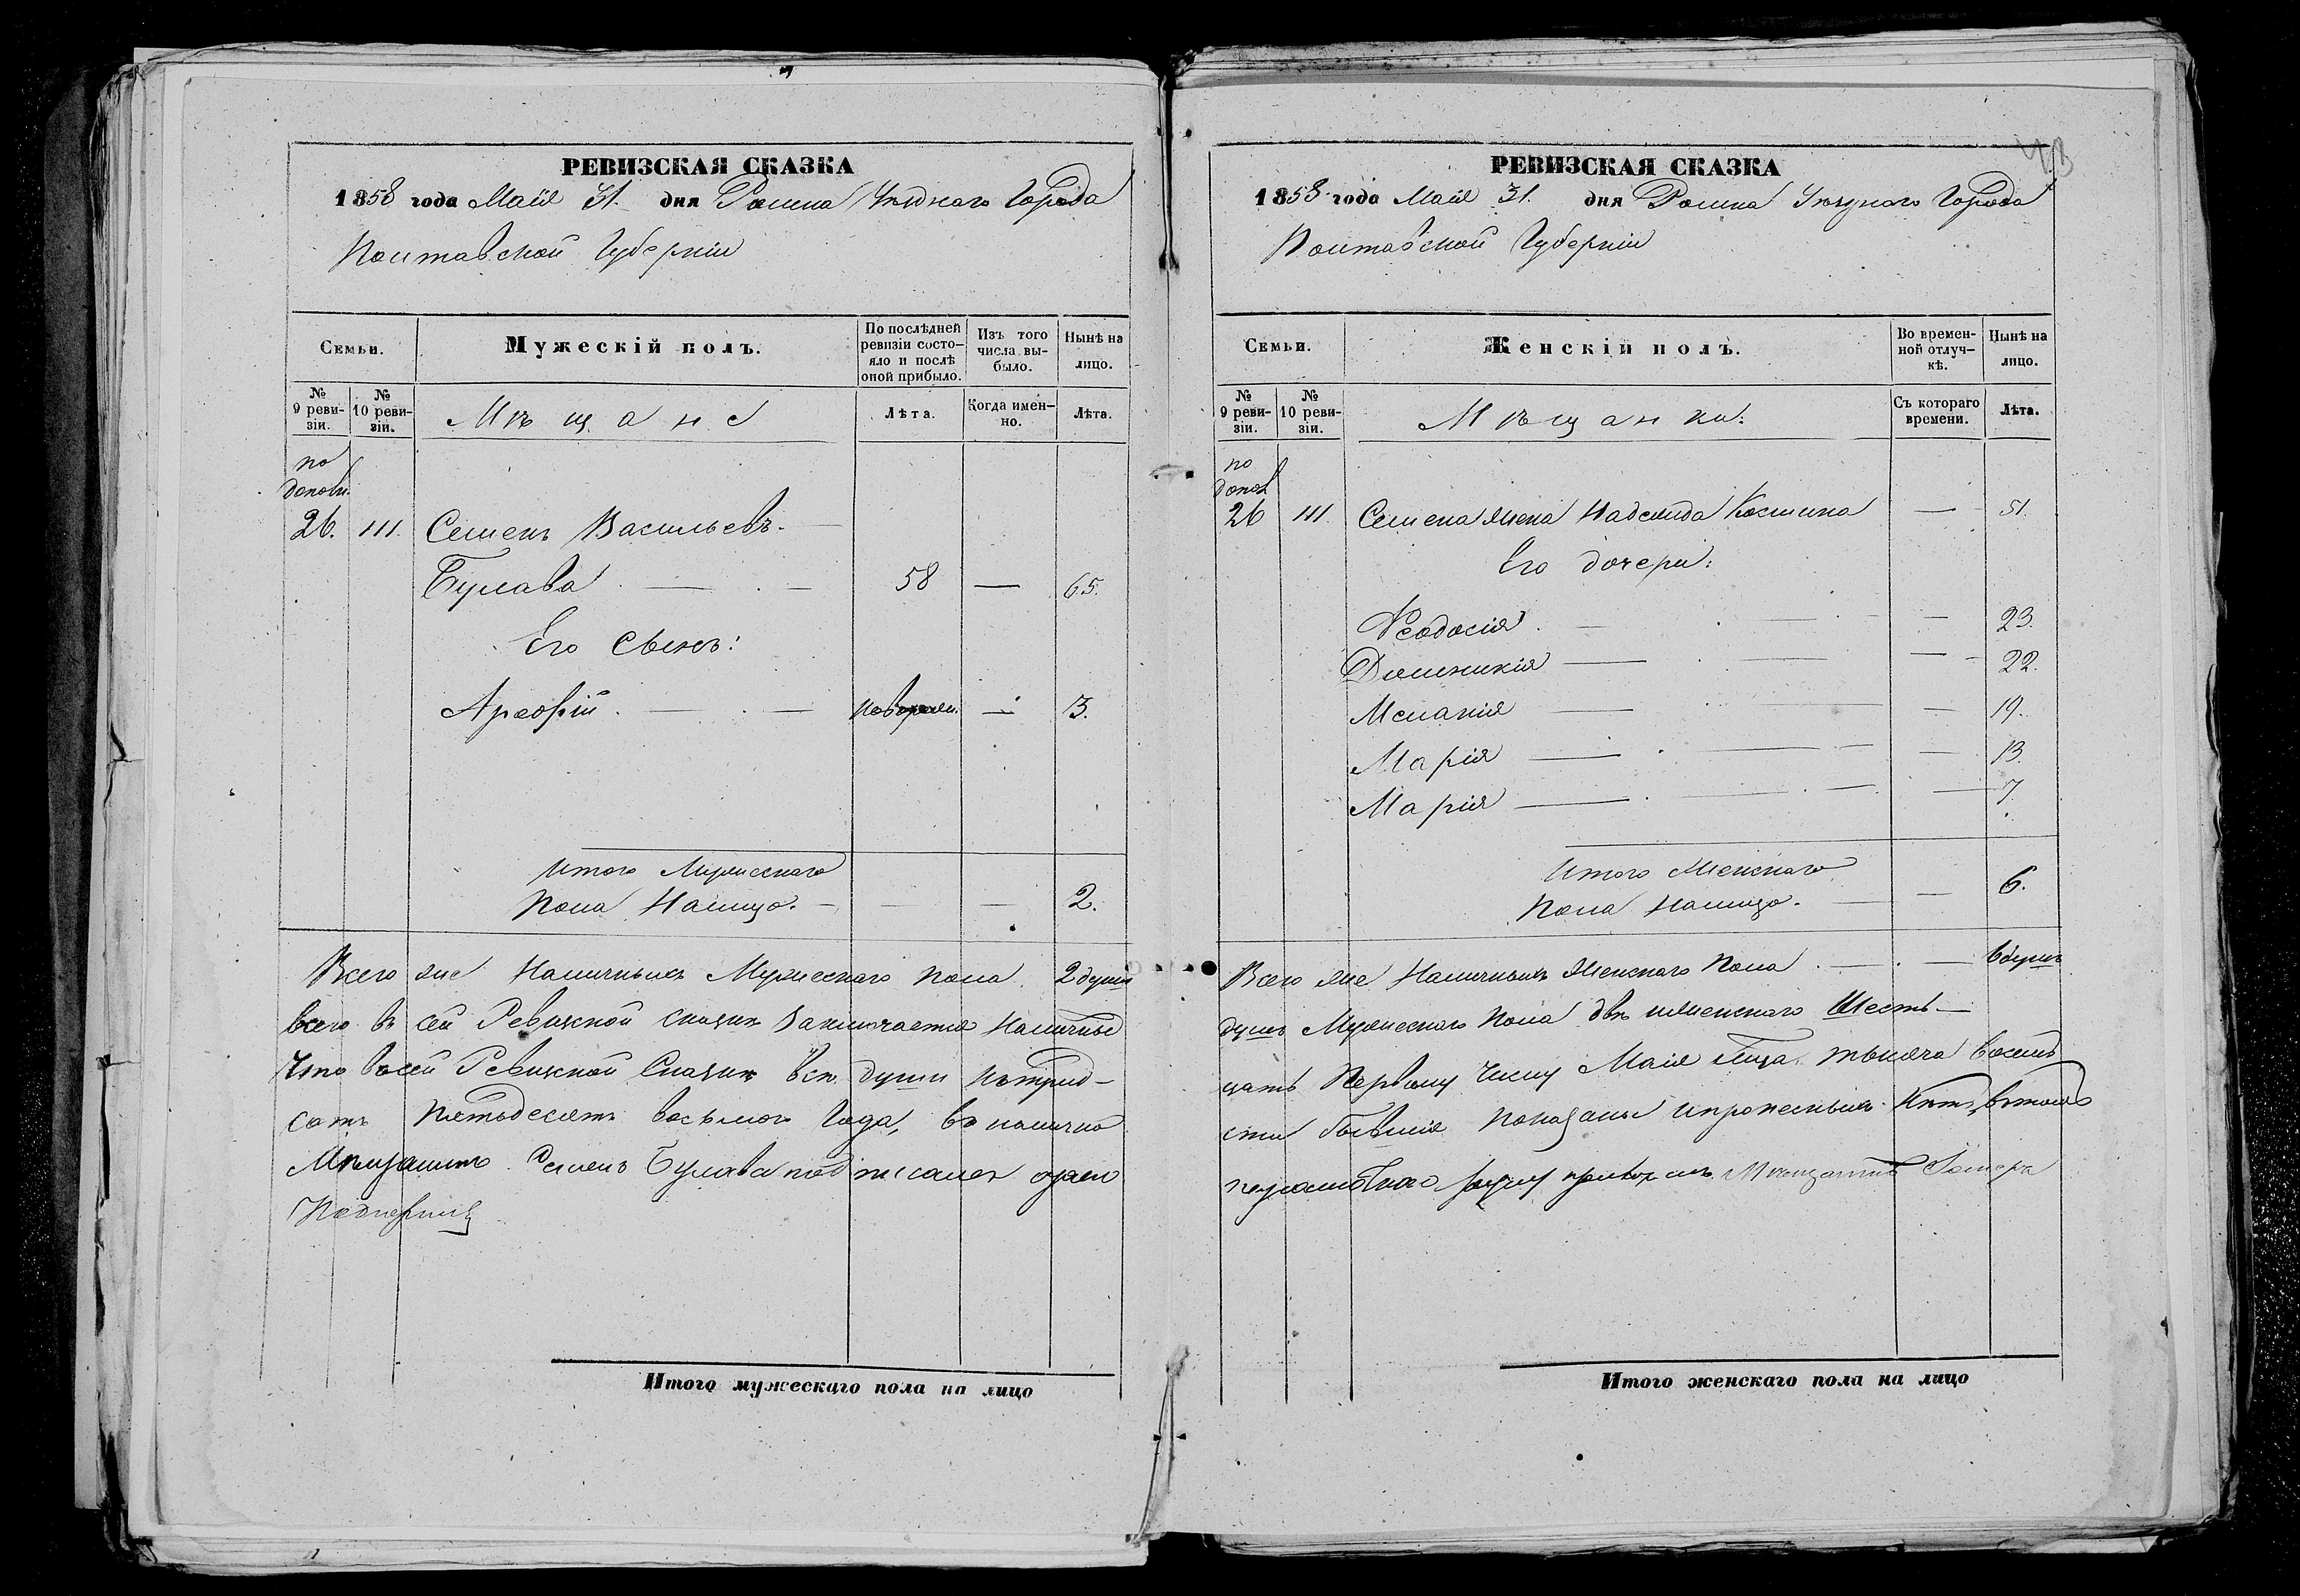 РЕВИЗСКАЯ СКАЗКА
1858 года Маія 31. дня Ромна Уѣзднаго Города
Полтавской Губерніи
Семьи.
Мужескій полъ.
По послѣдней ревизіи состо-
яло и послѣ
оной прибыло.
Изъ того
числа вы-
было.
Нынѣ на
лицо.
№
9 реви-
зіи.
№
10 реви-
зіи.
Мѣщане
Лѣта.
Когда имен-
но.
Лѣта.
по
дополн.
26. 111. Семенъ Васильевъ
Булава 58 — 65.
Его Сынъ:
новорожд. — 3.
Итого Мужескаго
Пола Налицо. — 2.
Всего же Наличныхъ Мужескаго пола 2 души
всего въ сей Ревизской сказкѣ Заключается Наличныхъ
Что въ сей Ревизской Сказкѣ всѣ души къ трид-
сотъ Пятьдесятъ восьмого Года, въ
Мѣщанинъ Семенъ Булава
Итого мужескаго пола на лицо
РЕВИЗСКАЯ СКАЗКА
43
1858 года Маія 31. дня Ромна Уѣзднаго Города
Полтавской Губерніи
Семьи.
Женскій полъ.
Во времен-
ной отлуч-
кѣ.
Нынѣ на
лицо.
№
9 реви-
зіи.
№
10 реви-
зіи.
Мѣщанки:
Съ котораго
времени.
Лѣта.
по
допол
26 111 Семена жена Надежда Козмина — 51.
Его дочери:
Феодосія — 23.
Домникія — 22.
Меланія — 19.
Марія — 13.
Марія — 7.
Итого Женскаго
Пола Налицо. — 6.
Всего же Наличныхъ Женскаго Пола — 6 душъ
душъ Мужескаго Пола двѣ и женскаго Шесть —
цать Первому Числу Маія тысяча восемь
показаны и
Итого женскаго пола на лицо